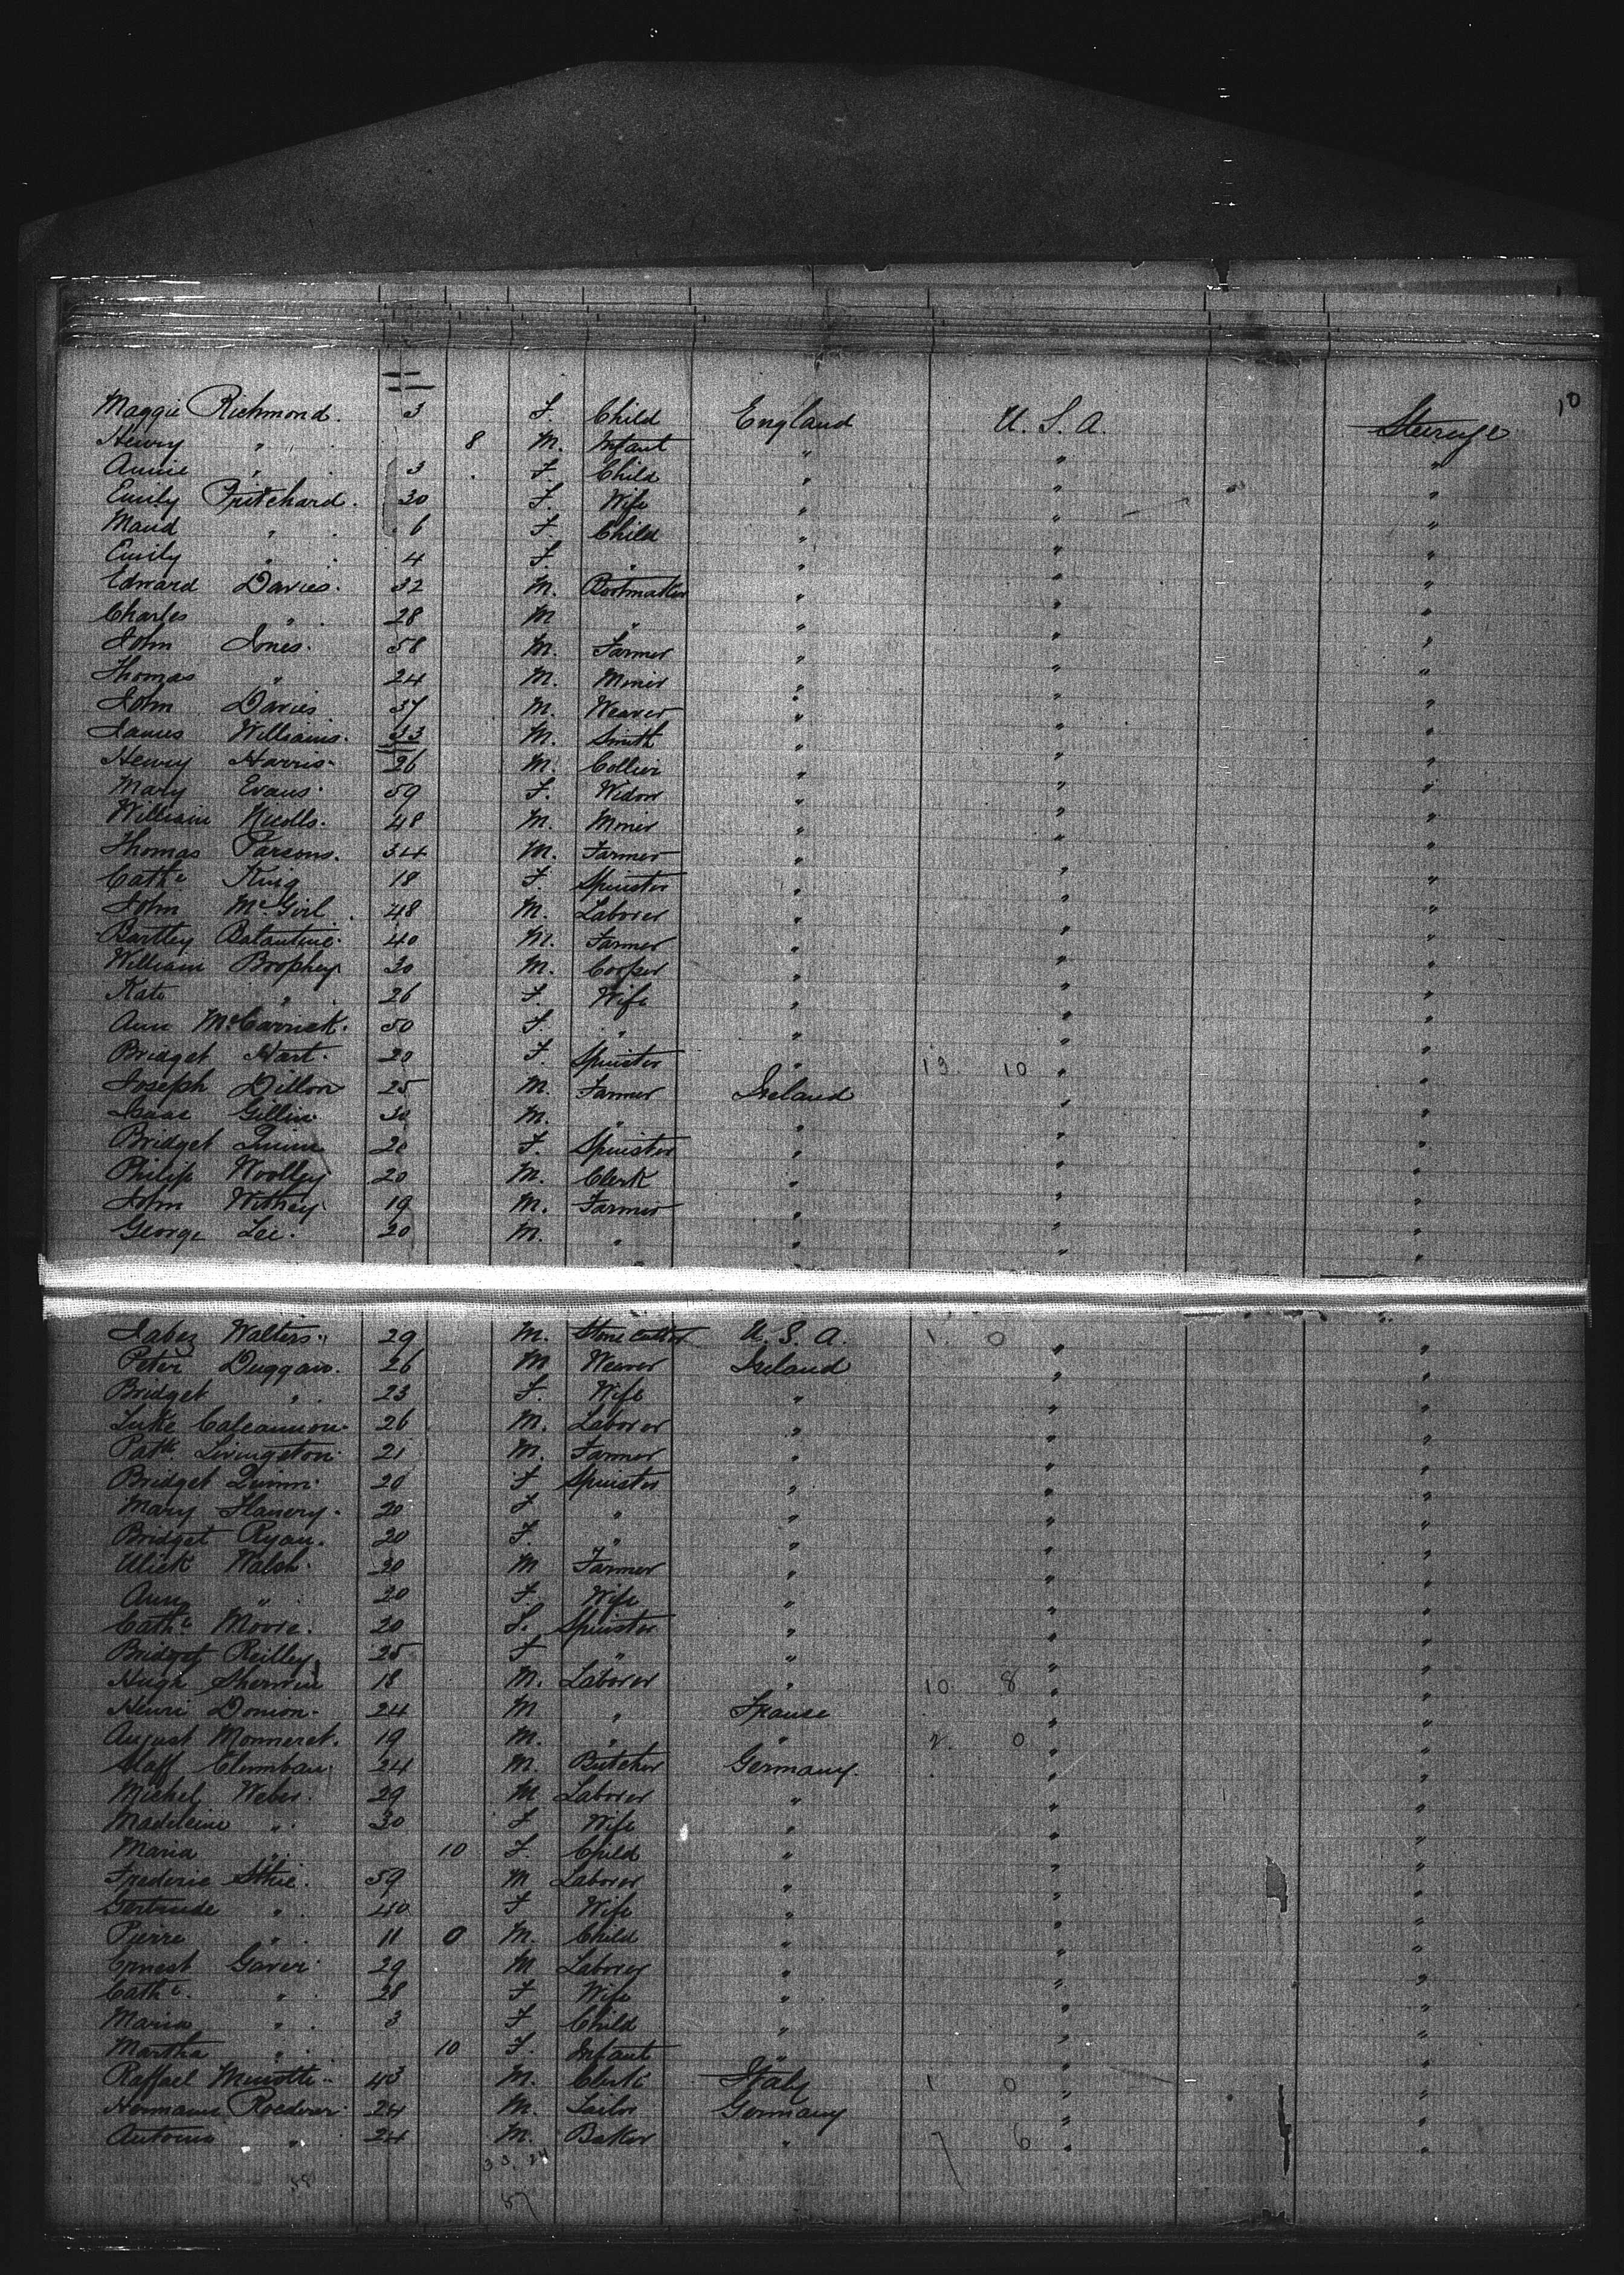 10
Maggie Richmond. 3 F. Child England U.S.A. Steerage
Henry " 8 M. Infant " " "
Annie " 3 F. Child " " "
Emily Pritchard. 30 F. Wife " " "
Maud " 6 F. Child " " "
Emily " 4 F. " " " "
Edward Davies. 32 M. Bootmaker " " "
Charles " 28 M " " " "
John Jones. 58 M. Farmer " " "
Thomas " 24 M. Miner " " "
John Davies 37 M. Weaver " " "
James Williams. 33 M. Smith " " "
Henry Harris. 26 M. Collier " " "
Mary Evans. 59 F. Widow " " "
William 48 M. Miner " " "
Thomas Parsons. 34 M. Farmer " " "
Cathe King 18 F. Spinster " " "
John McGirl. 48 M. Laborer " " "
Bartley Balantine. 40 M. Farmer " " "
William Brophey 30 M. Cooper " " "
Kate " 26 F. Wife " " "
Ann McCarrick. 50 F. " " " "
Bridget Hart. 20 F. Spinster " 13 10 " "
Joseph Dillon 25 M. Farmer Ireland " "
Isaac Gillin. 30 M. " " " "
Bridget Quinn 20 F. Spinster " " "
Philip Woolley 20 M. Clerk " " "
John Withey. 19 M. Farmer " " "
George Lee. 20 M. " " " "
Jabez Walters. 29 M. Stone cutter U.S.A. 1. 0 " "
Peter Duggan. 26 M Weaver Ireland " "
Bridget " 23 F. Wife " " "
Luke Caleannon. 26 M. Laborer " " "
Patk. Livingston. 21 M. Farmer " " "
Bridget Quinn. 20 F Spinster " " "
Mary Flanery. 20 F " " " "
Bridget Ryan. 20 F. " " " "
Ulick Walsh. 30 M Farmer " " "
Ann " 20 F. Wife " " "
Cathe Moore. 20 F. Spinster " " "
Bridget Reilley 25 F " " " "
Hugh Sherwin 18 M. Laborer " 10 8 " "
Henri Donion. 24 M " France " "
August Monneret. 19 M. " " 2. 0 " "
24 M. Butcher Germany. " "
Michel Weber. 29 M Laborer " " "
Madeleine " 30 F Wife " " "
Maria " 10 F. Child " " "
Frederic 59 M Laborer " " "
Gertrude " 40 F Wife " " "
Pierre " 11 0 M. Child " " "
Ernest Gaver. 29 M Laborer " " "
Cathe. " 28 F Wife " " "
Maria " 3 F Child " " "
Martha " 10 F. Infant " " "
Raffael Minotti. 43 M. Clerk Italy 1 0 " "
Hermann Roederer. 24 M. Tailor Germany " "
Antoine " 24 M. Baker " 7 6 " "
33. 24
58
57